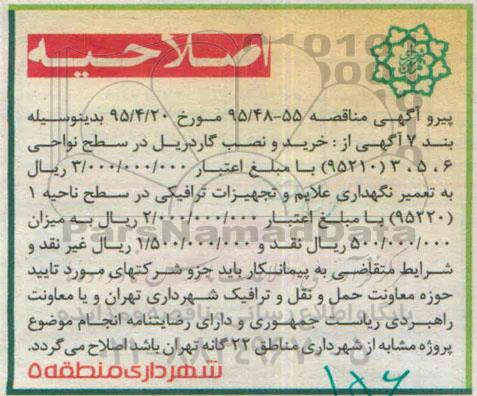 اصلاحیه
پیرو آگهی مناقصه ۵۵-۹۵/۴۸ مورخ ۹۵/۴/۲۰ بدینوسیله
بند ۷ آگهی از : خرید و نصب گاردریل در سطح نواحی
۶ ، ۵ ، ۳ (۹۵۲۱۰) با مبلغ اعتبار ۳/۰۰۰/۰۰۰/۰۰۰ ریال
به تعمیر نگهداری علایم و تجهیزات ترافیکی در سطح ناحیه ۱
(۹۵۲۲۰) با مبلغ اعتبار ۲/۰۰۰/۰۰۰/۰۰۰ ریال به میزان
۵۰۰/۰۰۰/۰۰۰ ریال نقد و ۱/۵۰۰/۰۰۰/۰۰۰ ریال غیر نقد و
شرایط متقاضی به پیمانکار باید جزو شرکتهای مورد تایید
حوزه معاونت حمل و نقل و ترافیک شهرداری تهران و یا معاونت
راهبردی ریاست جمهوری و دارای رضایتنامه انجام موضوع
پروژه مشابه از شهرداری مناطق ۲۲ گانه تهران باشد اصلاح می گردد.
شهرداری منطقه ۵
ParsNamadData
پایگاه اطلاع رسانی مناقصه و مزایده